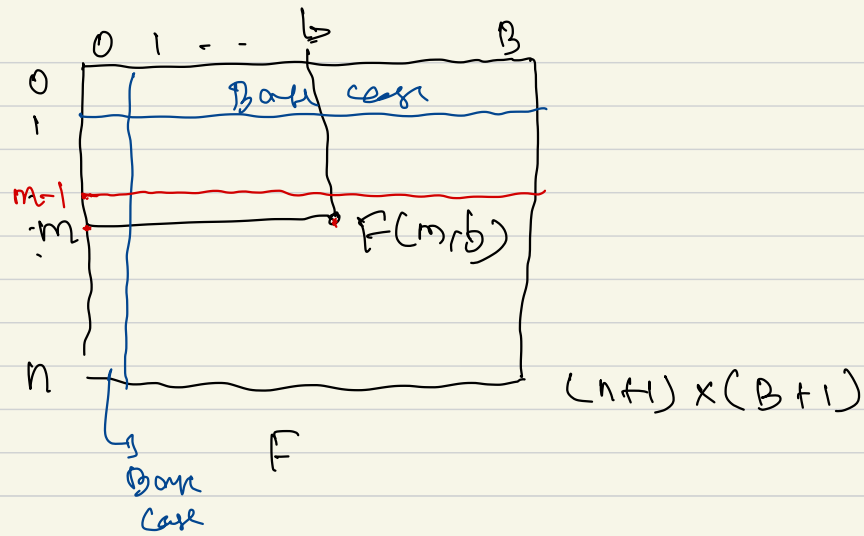 0 1 - - b B
0
Base case
1
m-1
m F(m,b)
n
(n+1) x (B+1)
F
Base
case